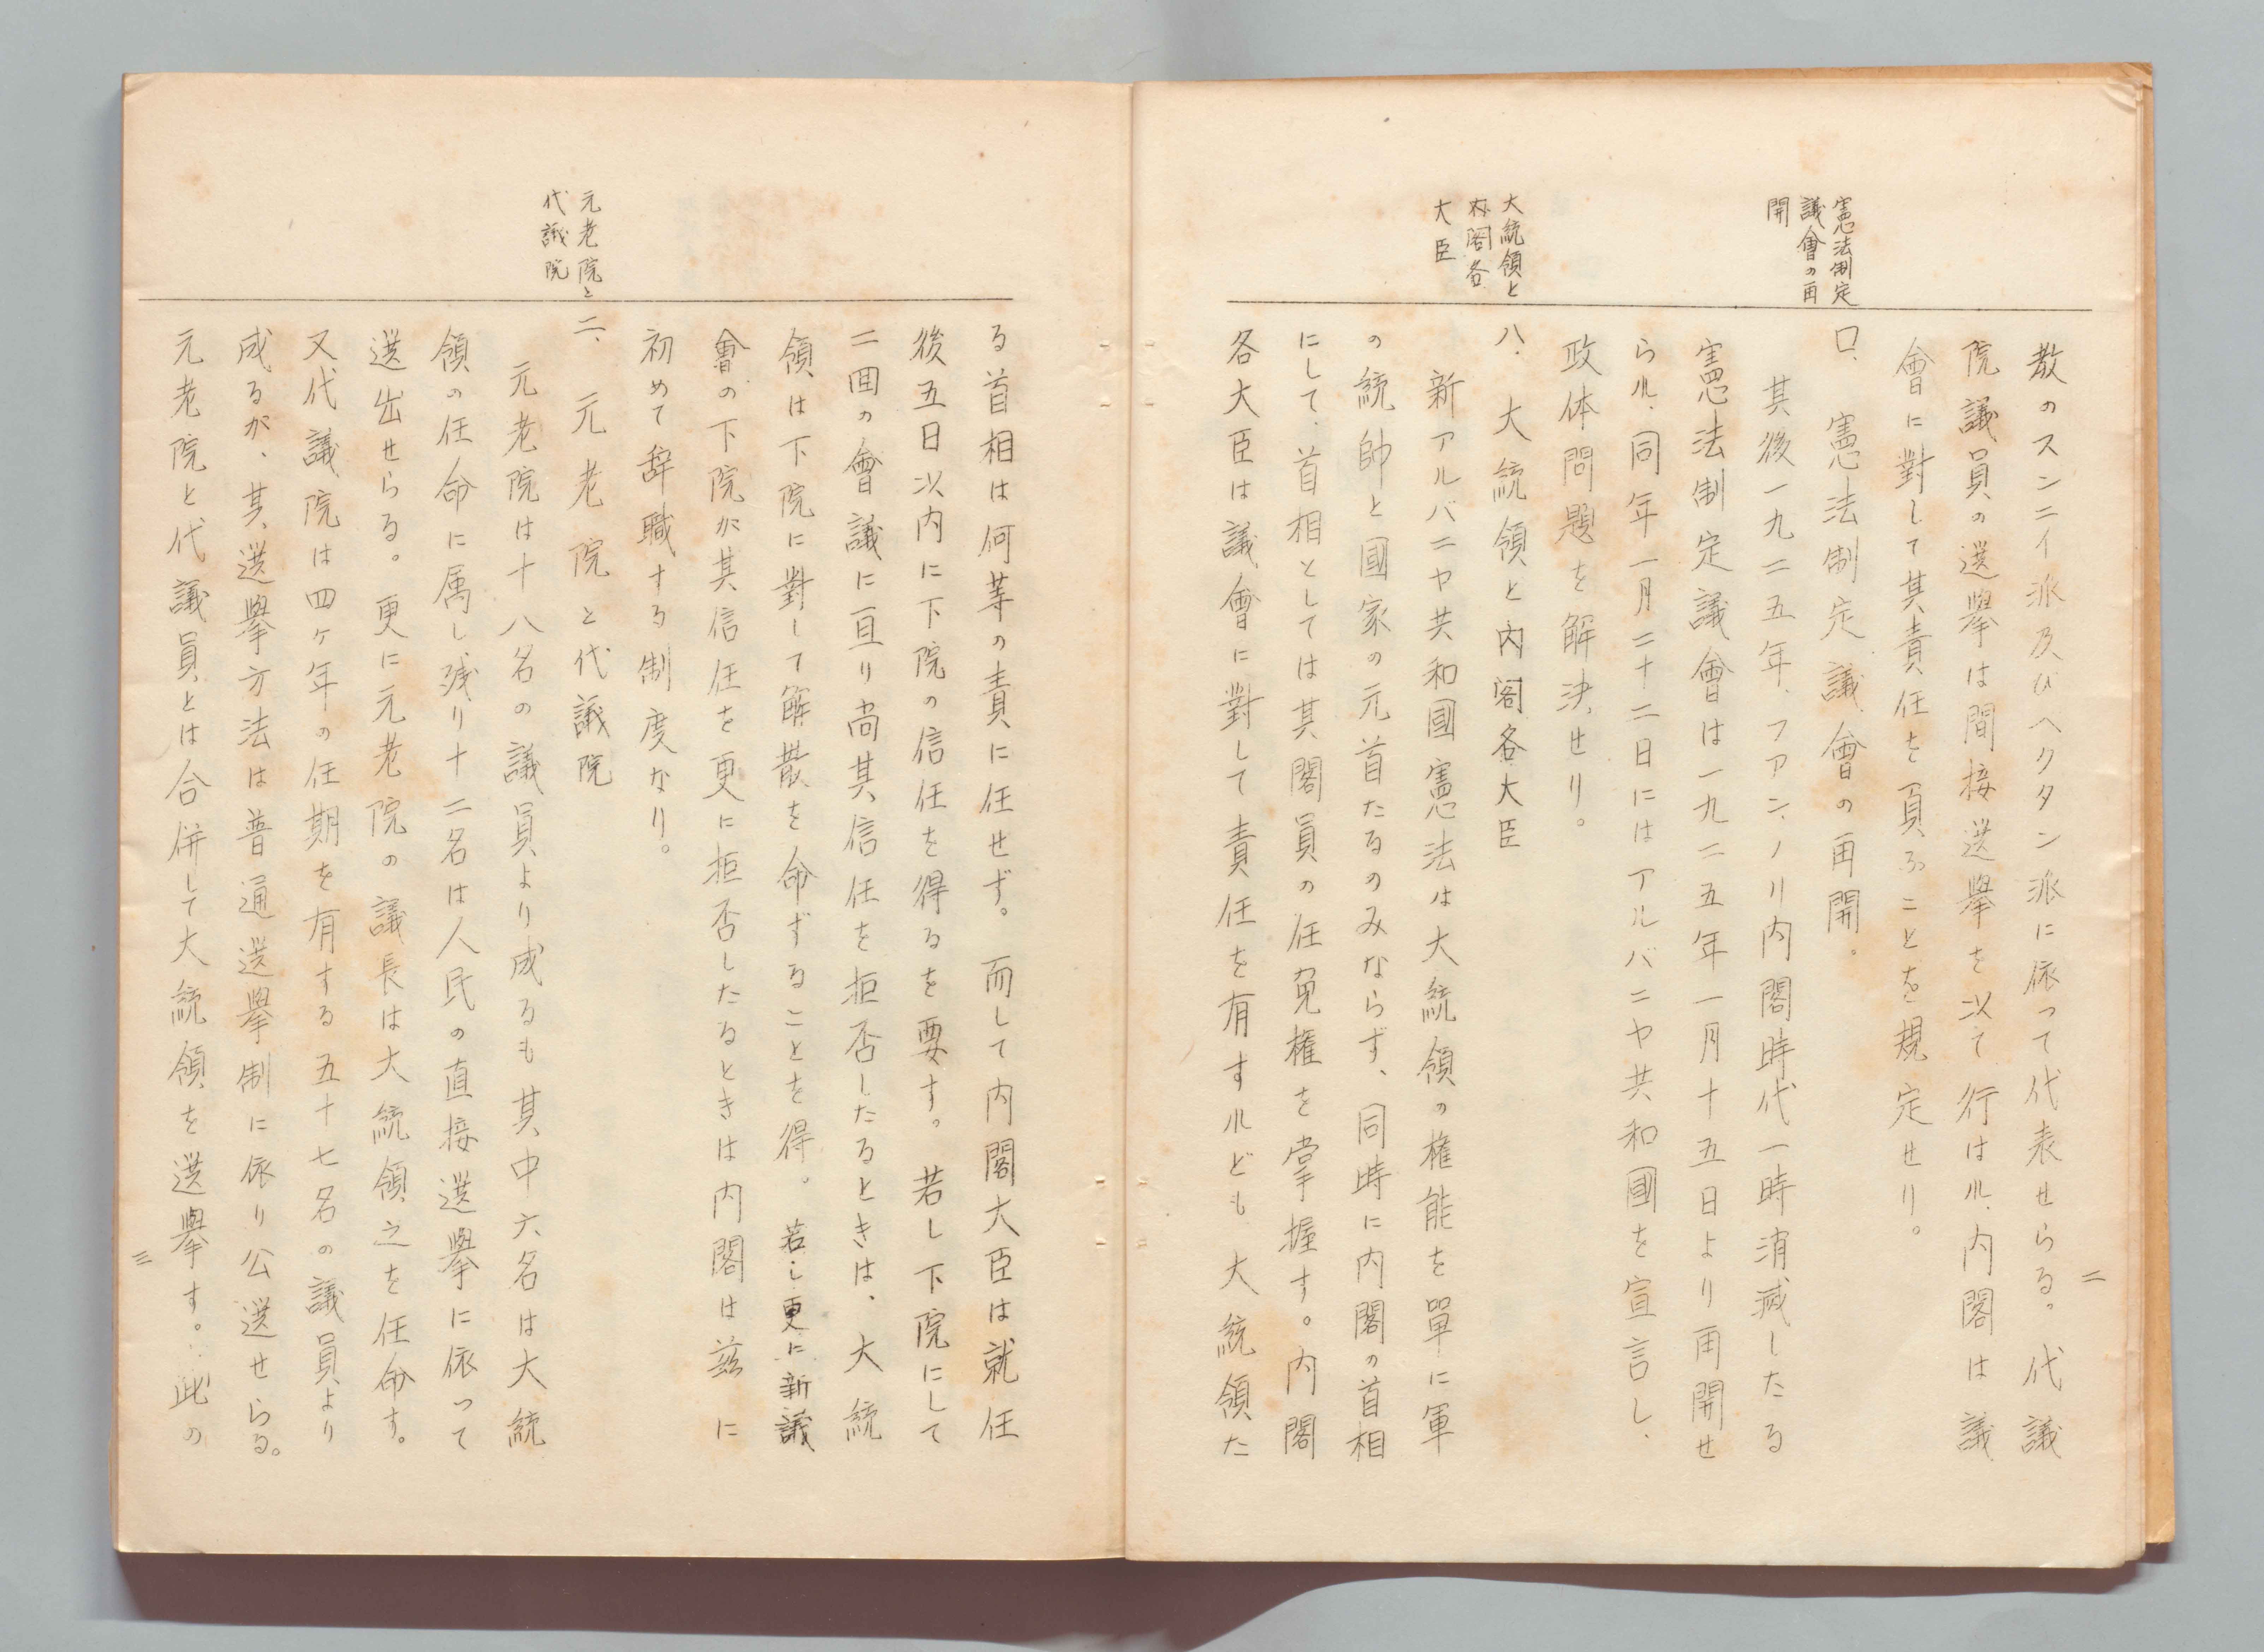 二
教のスンニイ派及びヘクタン派に依って代表せらる。代議
院議員の選擧は間接選擧を以て行はル、内閣は議
會に對して其責任を負ふことを規定せり。
憲法制定
議會の再
開
ロ、憲法制定議會の再開。
其後一九二五年、ファン、ノリ内閣時代一時消滅したる
憲法制定議會は一九二五年一月十五日より再開せ
らル、同年一月二十二日にはアルバニヤ共和國を宣言し、
政体問題を解決せり。
大統領と
内閣各
大臣
ハ、大統領と内閣各大臣
新アルバニヤ共和國憲法は大統領の権能を單に軍
の統帥と國家の元首たるのみならず、同時に内閣の首相
にして、首相としては其閣員の任免權を掌握す。内閣
各大臣は議會に對して責任を有すルども大統領た
る首相は何等の責に任せず。而して内閣大臣は就任
後五日以内に下院の信任を得るを要す。若し下院にして
二回の會議に亘り尚其信任を拒否したるときは、大統
領は下院に對して解散を命ずることを得。若し更に新議
會の下院が其信任を更に拒否したるときは内閣は茲に
初めて辞職する制度なり。
元老院と
代議院
二、元老院と代議院
元老院は十八名の議員より成るも其中六名は大統
領の任命に属し残り十二名は人民の直接選擧に依って
選出せらる。更に元老院の議長は大統領之を任命す。
又代議院は四ケ年の任期を有する五十七名の議員より
成るが、其選擧方法は普通選擧制に依り公選せらる。
元老院と代議員とは合併して大統領を選擧す。此の
三